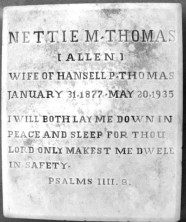 NETTIE M·THOMAS
[ALLEN]
WIFE OF HANSELL P·THOMAS
JANUARY 31·1877·MAY 20·1935
I WILL BOTH LAY ME DOWN IN
PEACE AND SLEEP FOR THOU
LORD ONLY MAKEST ME DWELL
IN SAFETY·
PSALMS IIII. 8.